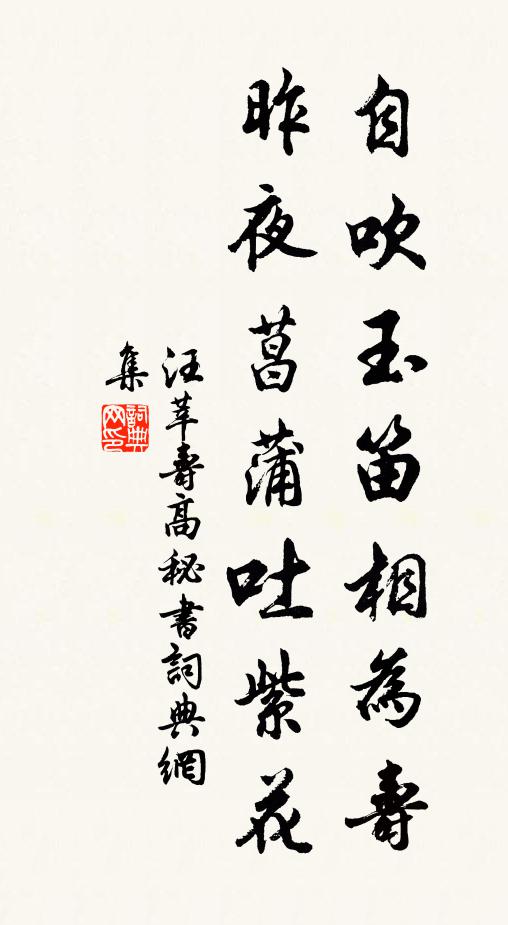 自吹玉笛相為壽
昨夜菖蒲吐紫花
汪莘壽高秘書詞典網
集
詞典网印